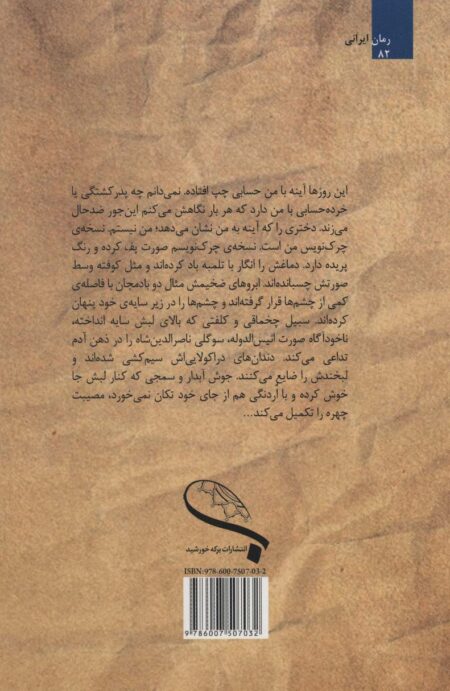 رمان ایرانی
۸۲
این روزها آینه با من حسابی چپ افتاده. نمی‌دانم چه پدرکشتگی یا
خرده‌حسابی با من دارد که هر بار نگاهش می‌کنم این‌جور ضدحال
می‌زند. دختری را که آینه به من نشان می‌دهد؛ من نیستم. نسخه‌ی
چرک‌نویس من است. نسخه‌ی چرک‌نویسم صورت پف کرده و رنگ
پریده دارد. دماغش را انگار با تلمبه باد کرده‌اند و مثل کوفته وسط
صورتش چسبانده‌اند. ابروهای ضخیمش مثال دو بادمجان با فاصله‌ی
کمی از چشم‌ها قرار گرفته‌اند و چشم‌ها را در زیر سایه‌ی خود پنهان
کرده‌اند. سبیل چخماقی و کلفتی که بالای لبش سایه انداخته،
ناخودآگاه صورت انیس‌الدوله، سوگلی ناصرالدین‌شاه را در ذهن آدم
تداعی می‌کند. دندان‌های دراکولایی‌اش سیم‌کشی شده‌اند و
لبخندش را ضایع می‌کنند. جوش آبدار و سمجی که کنار لبش جا
خوش کرده و با اُردنگی هم از جای خود تکان نمی‌خورد، مصیبت
چهره را تکمیل می‌کند...
انتشارات برکه خورشید
ISBN: 978-600-7507-03-2
9 786007 507032